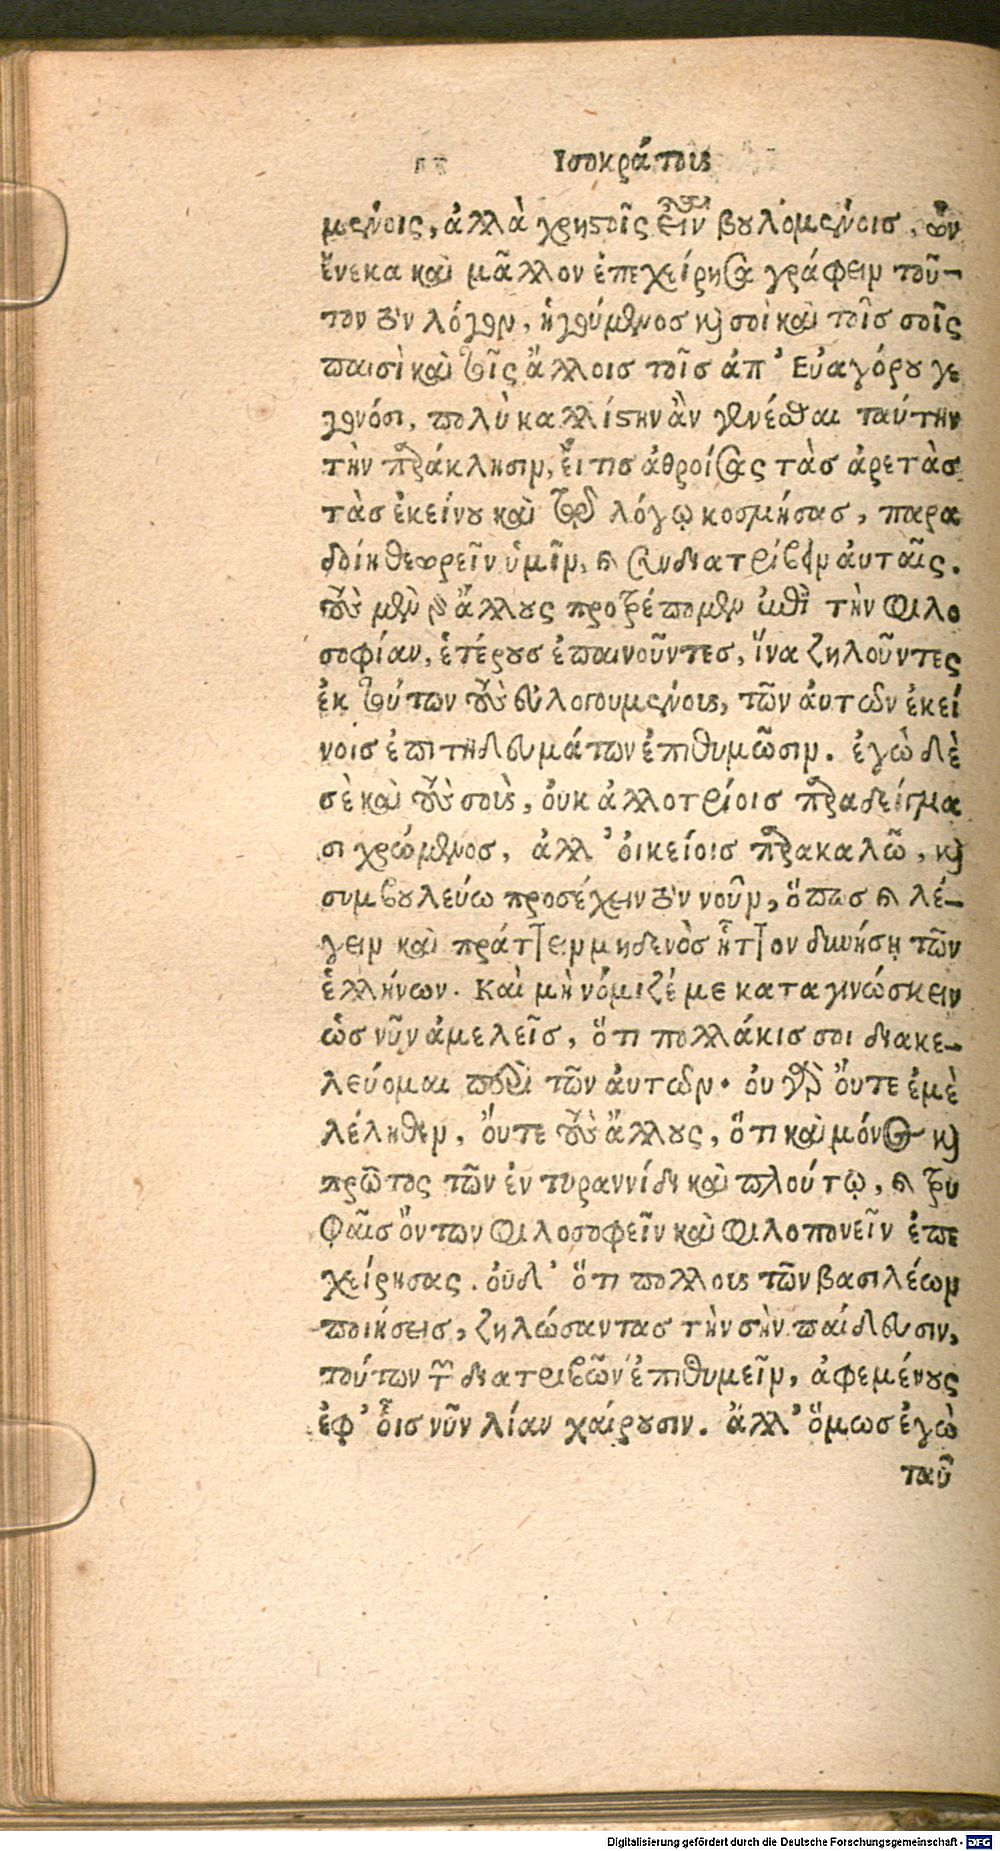 Ισοκράτους
μενοις, ἀλλὰ χρηστοῖς εἶναι βουλομένοις, ὧν
ἕνεκα καὶ μᾶλλον ἐπεχείρησα γράφειν τοῦ-
τον τὸν λόγον, ἡγούμενος καὶ σοὶ καὶ τοῖς σοῖς
παισὶ καὶ τοῖς ἄλλοις τοῖς ἀπ' Εὐαγόρου γε
γονόσι, πολὺ καλλίστην ἂν γενέσθαι ταύτην
τὴν παράκλησιν, εἴ τις ἀθροίσας τὰς ἀρετὰς
τὰς ἐκείνου καὶ τῷ λόγῳ κοσμήσας, παρα
δοίη θεωρεῖν ὑμῖν, καὶ συνδιατρίβειν αὐταῖς.
τοὺς μὲν γὰρ ἄλλους προτρέπομεν ἐπὶ τὴν φιλο
σοφίαν, ἑτέρους ἐπαινοῦντες, ἵνα ζηλοῦντες
ἐκ τούτων τοὺς εὐλογουμένους, τῶν αὐτῶν ἐκεί
νοις ἐπιτηδευμάτων ἐπιθυμῶσιν. ἐγὼ δὲ
σὲ καὶ τοὺς σοὺς, οὐκ ἀλλοτρίοις παραδείγμα
σι χρώμενος, ἀλλ' οἰκείοις παρακαλῶ, καὶ
συμβουλεύω προσέχειν τὸν νοῦν, ὅπως καὶ λέ-
γειν καὶ πράττειν μηδενὸς ἧττον δυνήσῃ τῶν
ἑλλήνων. Καὶ μὴ νόμιζέ με καταγινώσκειν
ὡς νῦν ἀμελεῖς, ὅτι πολλάκις σοι διακε-
λεύομαι περὶ τῶν αὐτῶν. οὐ γὰρ οὔτε ἐμὲ
λέληθεν, οὔτε τοὺς ἄλλους, ὅτι καὶ μόνος καὶ
πρῶτος τῶν ἐν τυραννίδι καὶ πλούτῳ, καὶ τρυ
φαῖς ὄντων φιλοσοφεῖν καὶ φιλοπονεῖν ἐπε
χείρησας. οὐδ' ὅτι πολλοὺς τῶν βασιλέων
ποιήσεις, ζηλώσαντας τὴν σὴν παίδευσιν,
τούτων τῶν διατριβῶν ἐπιθυμεῖν, ἀφεμένους
ἐφ' οἷς νῦν λίαν χαίρουσιν. ἀλλ' ὅμως ἐγὼ
ταῦ
Digitalisierung gefördert durch die Deutsche Forschungsgemeinschaft - DFG